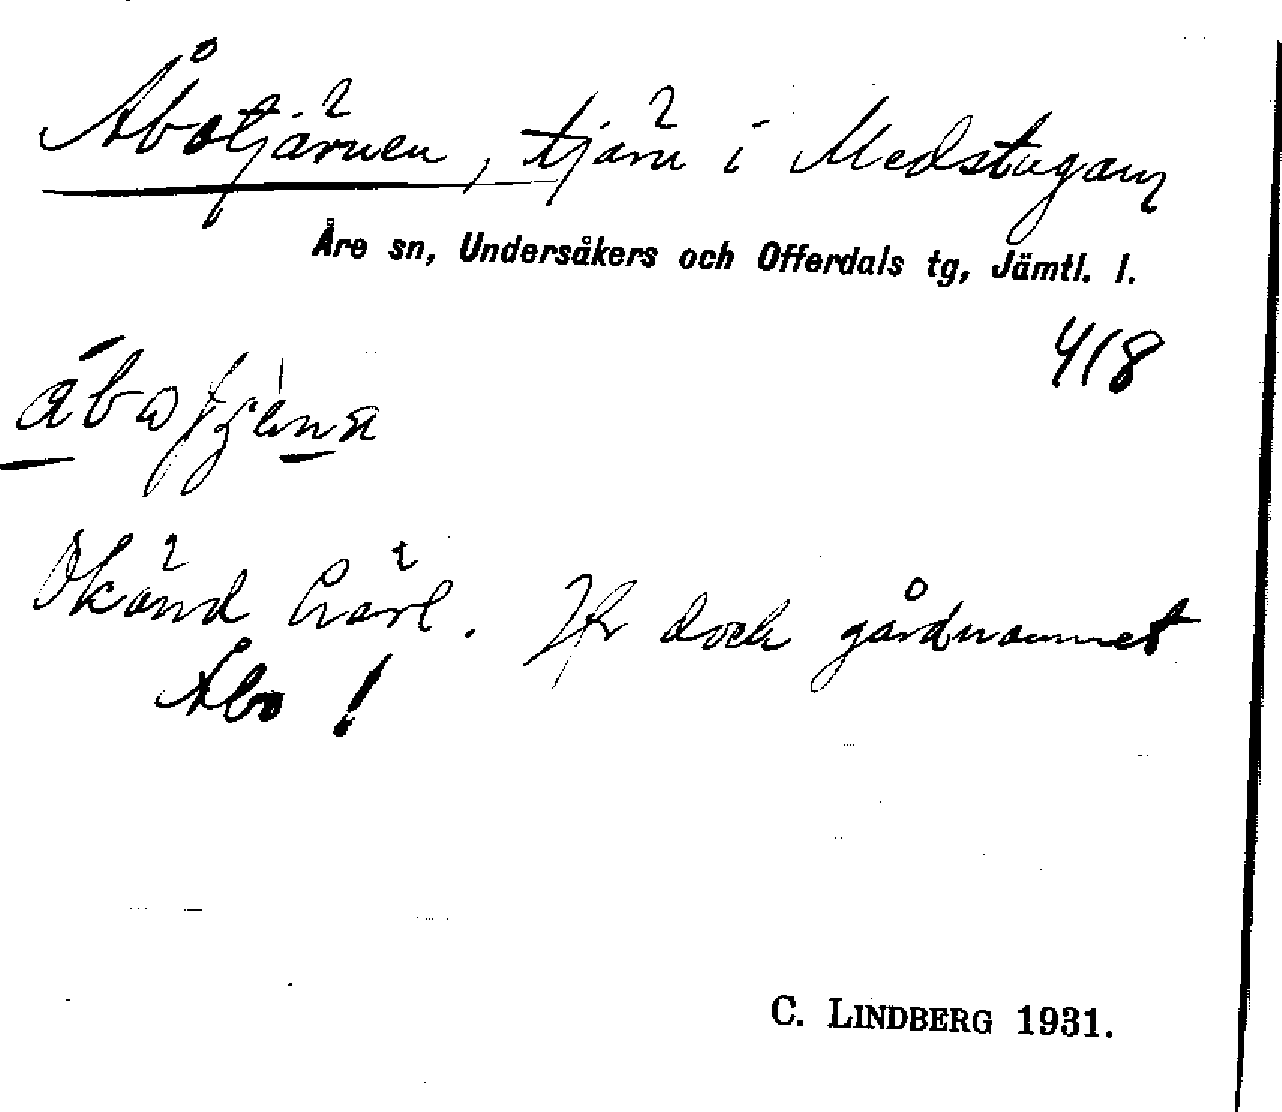 Åbotjärnen, tjärn i Medstugan
Åre sn, Undersåkers och Offerdals tg, Jämtl. l.
418
Okänd härl. Jfr dock gårdnamnet
Åbo!
C. LINDBERG 1931.